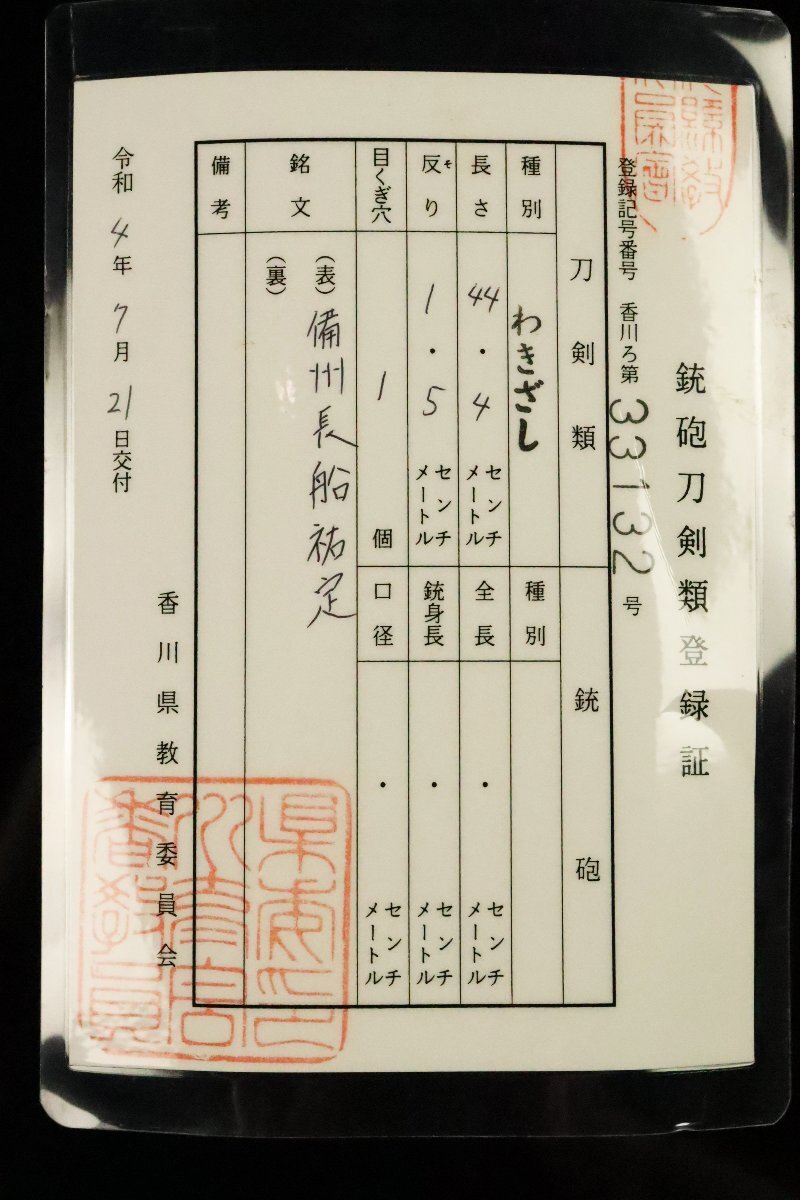 銃砲刀剣類登録証
登録記号番号 香川ろ第33132号
刀剣類
種別 わきざし
長さ 44・4 センチメートル
反り 1・5 センチメートル
そ
目くぎ穴 1個
銘文 (表) 備州長船祐定
(裏)
備考
銃砲
種別
全長 ・ センチメートル
銃身長 ・ センチメートル
口径 ・ センチメートル
令和4年7月21日交付
香川県教育委員会